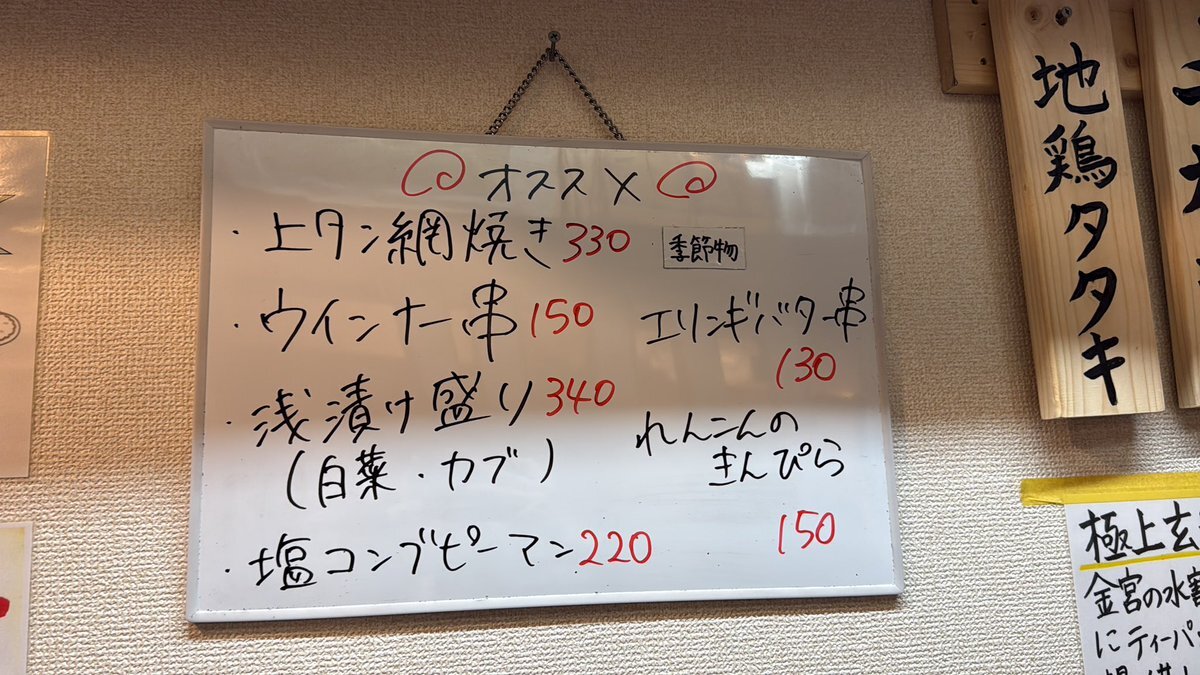 オススメ
・上タン網焼き330
・ウインナー串150
・浅漬け盛り340
(白菜・カブ)
・塩コンブピーマン220
季節物
エリンギバター串
130
れんこんの
きんぴら
150
地鶏タタキ
極上玄
金宮の水割
にティーパ